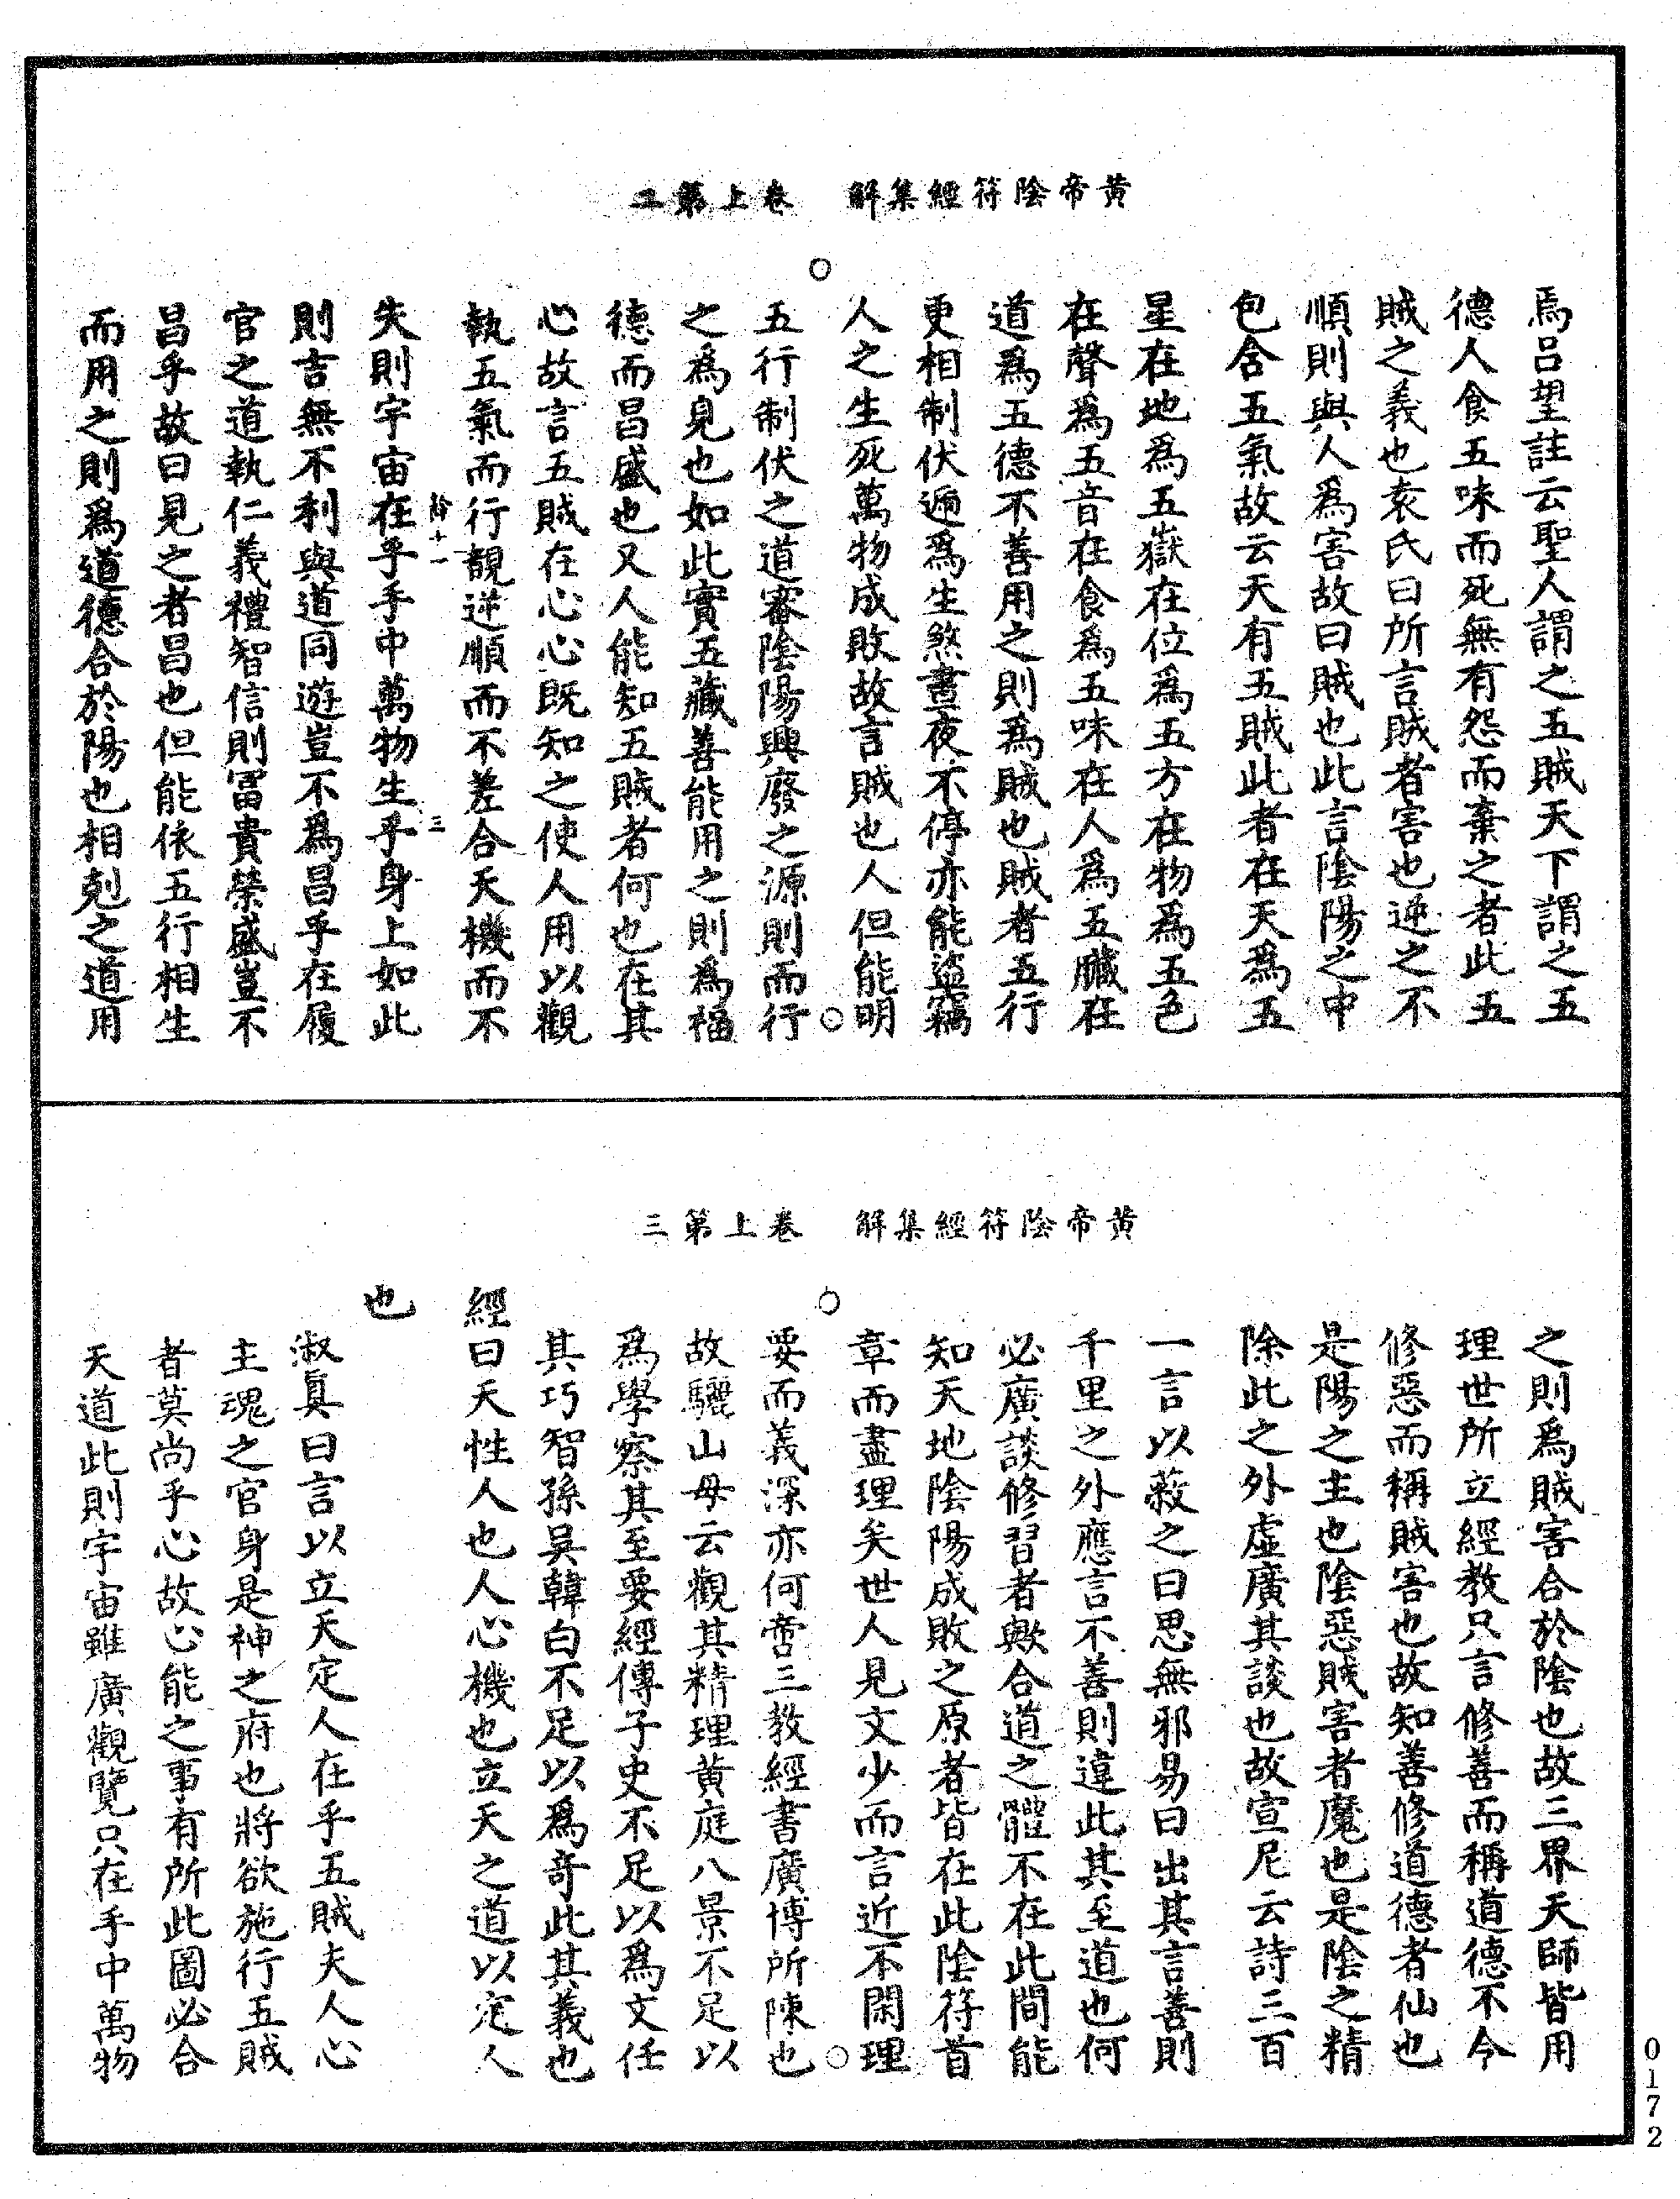 黃帝陰符經集解　卷上第二
焉呂望註云聖人謂之五賊天下謂之五
德人食五味而死無有怨而棄之者此五
賊之義也袁氏曰所言賊者害也逆之不
順則與人爲害故曰賊也此言陰陽之中
包含五氣故云天有五賊此者在天爲五
星在地爲五嶽在位爲五方在物爲五色
在聲爲五音在食爲五味在人爲五臟在
道爲五德不善用之則爲賊也賊者五行
更相制伏遞爲生煞晝夜不停亦能盜竊
人之生死萬物成敗故言賊也人但能明
五行制伏之道審陰陽興廢之源則而行
之爲見也如此實五藏善能用之則爲福
德而昌盛也又人能知五賊者何也在其
心故言五賊在心心既知之使人用以觀
執五氣而行覩逆順而不差合天機而不
餘十一　三
失則宇宙在乎手中萬物生乎身上如此
則吉無不利與道同遊豈不爲昌乎在履
官之道執仁義禮智信則冨貴榮盛豈不
昌乎故曰見之者昌也但能依五行相生
而用之則爲道德合於陽也相剋之道用
黃帝陰符經集解　卷上第三
之則爲賊害合於陰也故三界天師皆用
理世所立經教只言修善而稱道德不令
修惡而稱賊害也故知善修道德者仙也
是陽之主也陰惡賊害者魔也是陰之精
除此之外虛廣其談也故宣尼云詩三百
一言以蔽之曰思無邪易曰出其言善則
千里之外應言不善則違此其至道也何
必廣談修習者歟合道之體不在此間能
知天地陰陽成敗之原者皆在此陰符首
章而盡理矣世人見文少而言近不閑理
要而義深亦何啻三教經書廣博所陳也
故驪山母云觀其精理黃庭八景不足以
爲學察其至要經傳子史不足以爲文任
其巧智孫吳韓白不足以爲奇此其義也
經曰天性人也人心機也立天之道以定人
也
淑眞曰言以立天定人在乎五賊夫人心
主魂之官身是神之府也將欲施行五賊
者莫尚乎心故心能之事有所此圖必合
天道此則宇宙雖廣觀覽只在手中萬物
0172